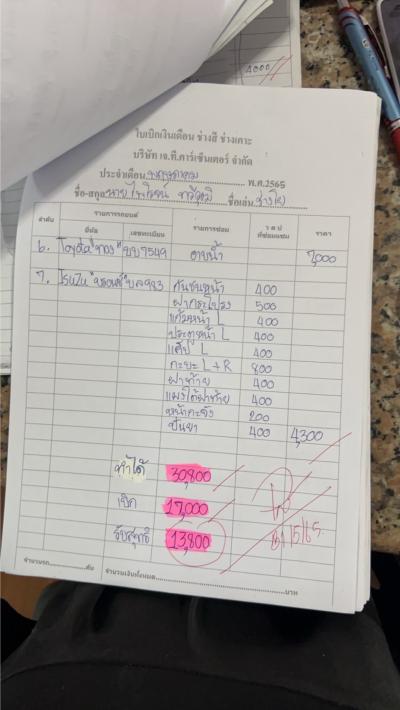 4000
ใบเบิกเงินเดือน ช่างสี ช่างเคาะ
บริษัท เจ.ที.คาร์เซ็นเตอร์ จำกัด
ประจำเดือน พฤษภาคม พ.ศ.2565
ชื่อ-สกุล นาย ไพโรจน์ ชื่อเล่น ช่าง
ลำดับ รายการรถยนต์ รายการซ่อม ราคา
ยี่ห้อ เลขทะเบียน
6. Toyota ทอง 7549 อาบน้ำ 7,000
7. ISUZU บรอนซ์ บล 983 กันชนหน้า 400
ฝากระโปรง 500
แก้มหน้า L 400
ประตูหน้า L 400
แค๊ป L 400
กะบะ L+R 800
ฝาท้าย 400
แผงใต้ฝาท้าย 400
หน้ากะจัง 200
ปั่นยา 400 4,300
ทำได้ 30,800
เบิก 17,000
รับสุทธิ 13,800
จำนวนรถ คัน จำนวนเงินทั้งหมด บาท